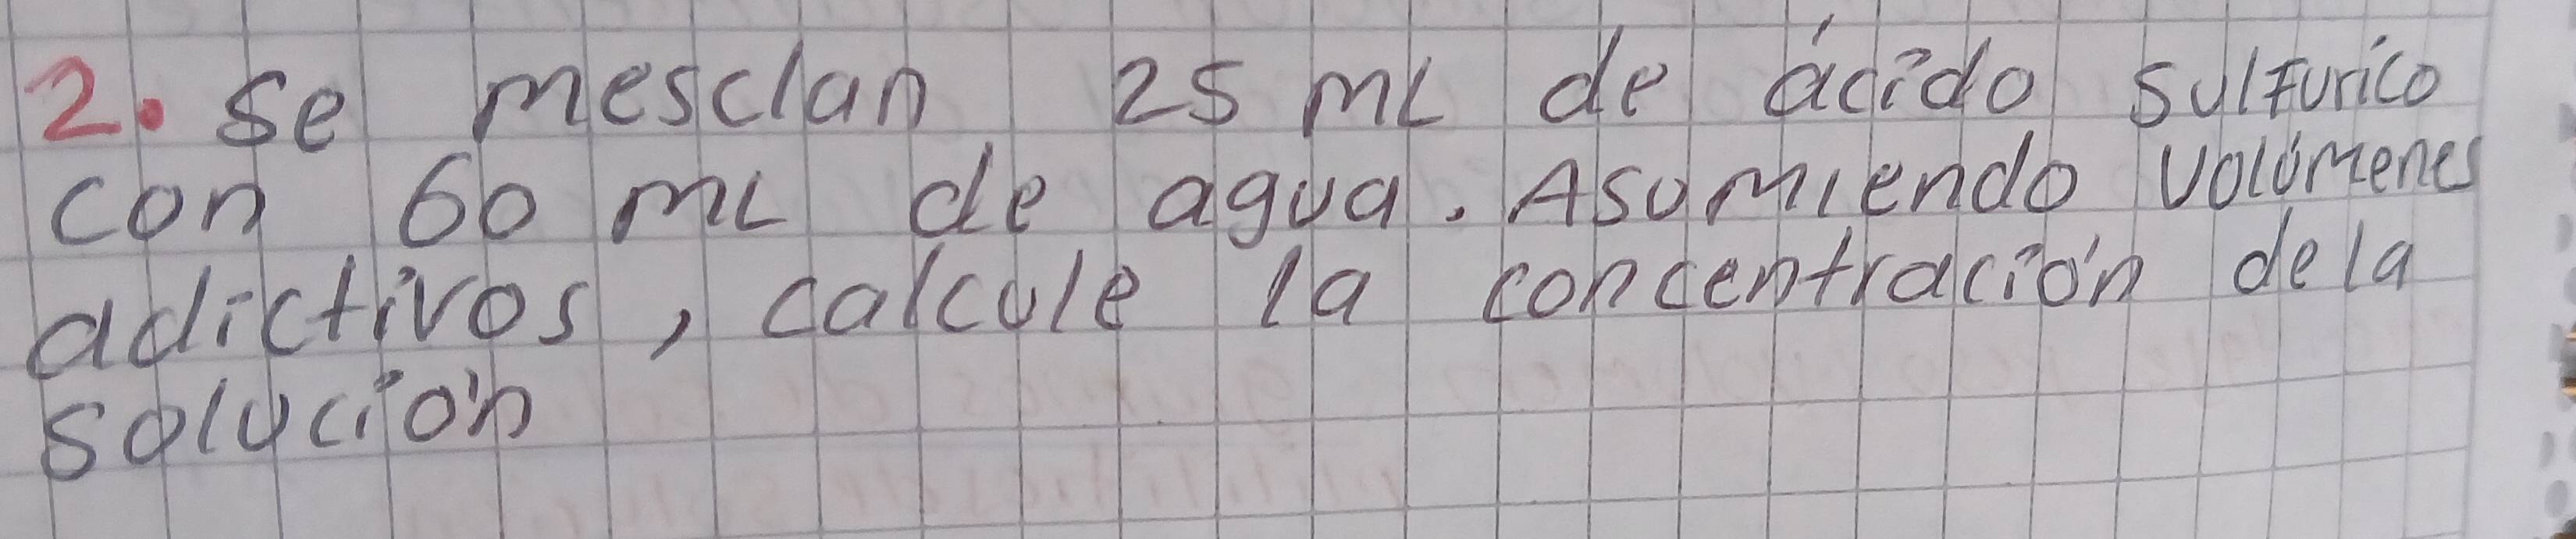 2. Se mesclan 25 mL de ácido sulfurico
con 60 mL de agua. Asumiendo volúmenes
adictivos, calcule la concentración de la
solución